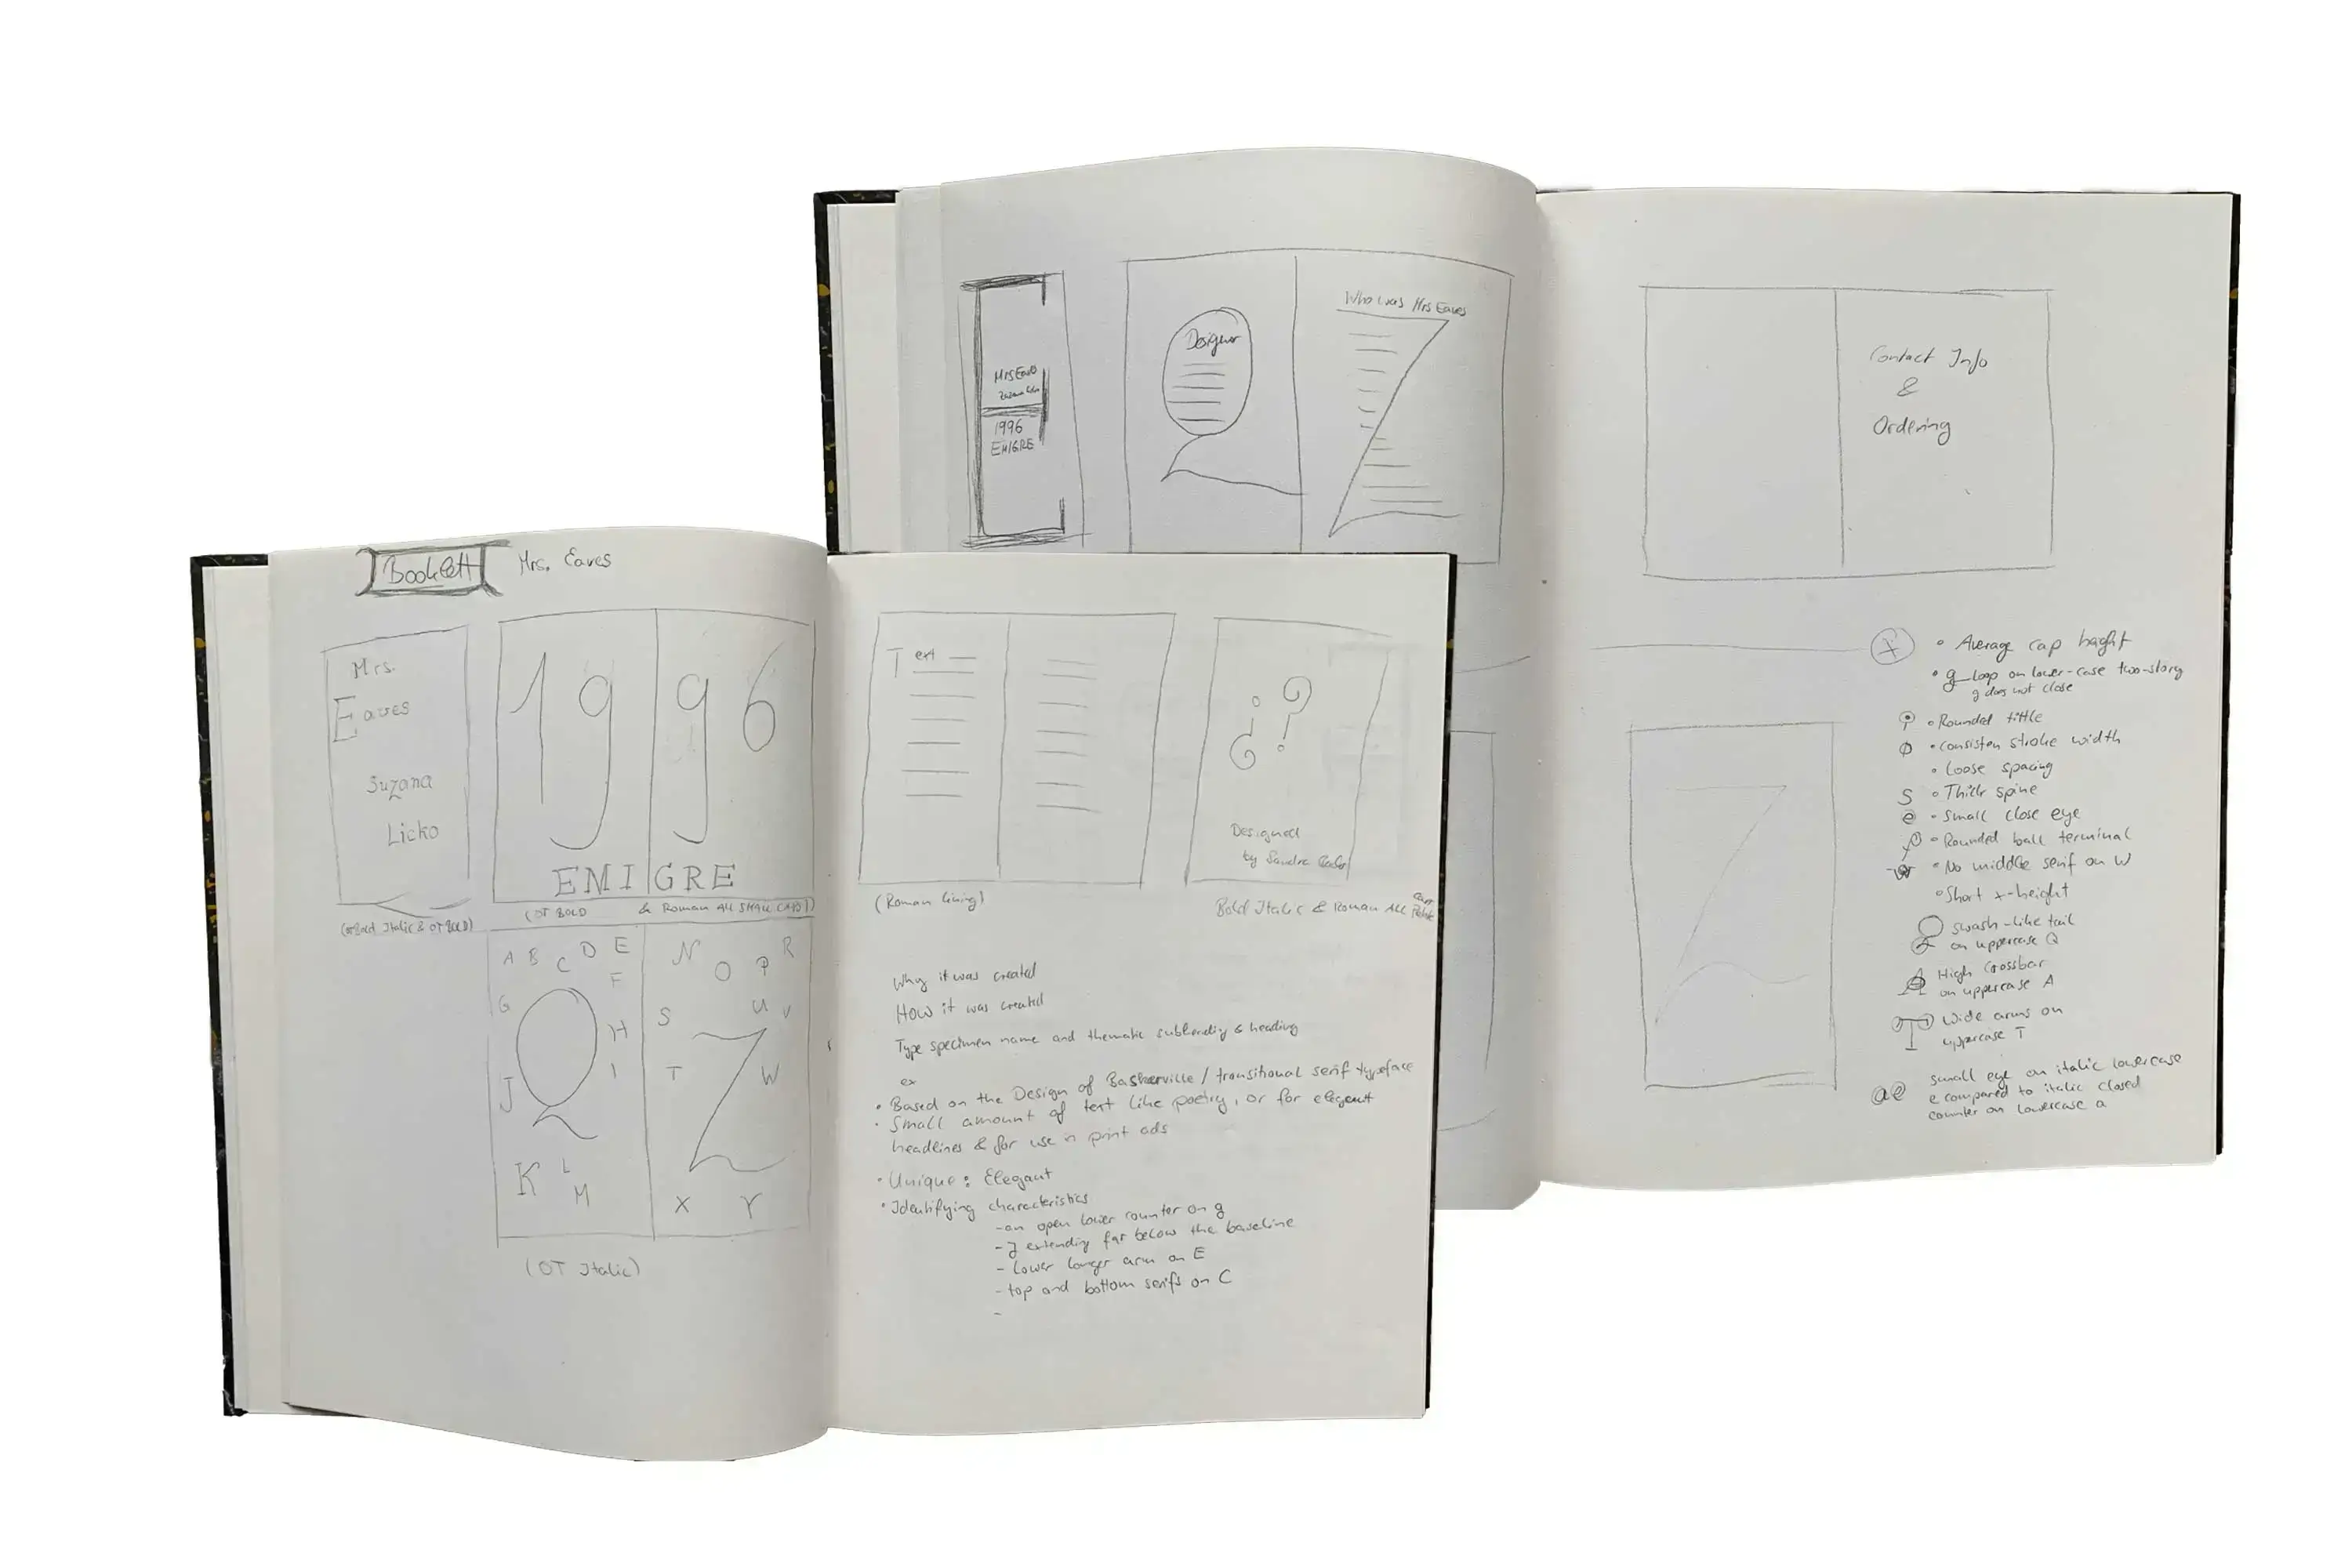 Booklett
Mrs. Eaves
Mrs.
Eaves
Suzana
Licko
(OT Bold Italic & OT BOLD)
1996
EMIGRE
(OT BOLD & Roman All SMALL CAPS)
A B C D E
F
G
Q
H
I
J
K L
M
N O P R
S
U V
T
Z
W
X Y
(OT Italic)
Text
(Roman lining)
Designed
by Sandra
Bold Italic & Roman ALL
Why it was created
How it was created
Type specimen name and thematic subheading & heading
ex
• Based on the Design of Baskerville / transitional serif typeface
• Small amount of text like poetry, or for elegant
headlines & for use in print ads
• Unique: Elegant
• Identifying characteristics
- an open lower counter on g
- J extending far below the baseline
- lower longer arm on E
- top and bottom serifs on C
-
Mrs Eaves
1996
EMIGRE
Designer
Who was Mrs Eaves
Contact Info
&
Ordering
• Average cap height
• g loop on lower-case two-story
g does not close
• Rounded tittle
• consisten stroke width
• Loose spacing
S • Thick spine
e • Small close eye
• Rounded ball terminal
w • No middle serif on W
• Short x-height
Q swash-like tail
on uppercase Q
A High crossbar
on uppercase A
T Wide arms on
uppercase T
ae small eye on italic lowercase
e compared to italic closed
counter on lowercase a